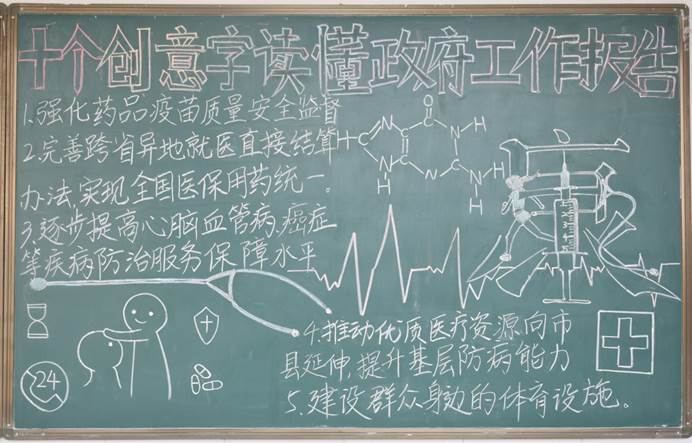 十个创意字读懂政府工作报告
1.强化药品疫苗质量安全监督
2.完善跨省异地就医直接结算
办法,实现全国医保用药统一。
3.逐步提高心脑血管病,癌症
等疾病防治服务保障水平
H
N
N
H
O
N
H
N
N
H
N-H
H
康
4.推动优质医疗资源向市
县延伸,提升基层防病能力
5.建设群众身边的体育设施。
24